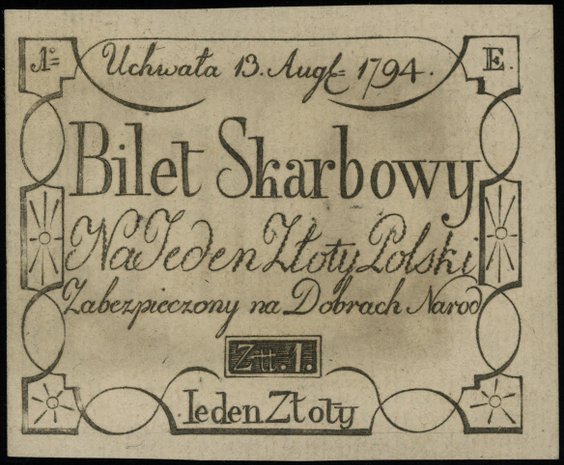 A⁰= Uchwała 13. Augſ= 1794. E.
Bilet Skarbowy
Na Jeden Złoty Polski
Zabezpieczony na Dobrach Narod
Złł. 1.
Ieden Złoty